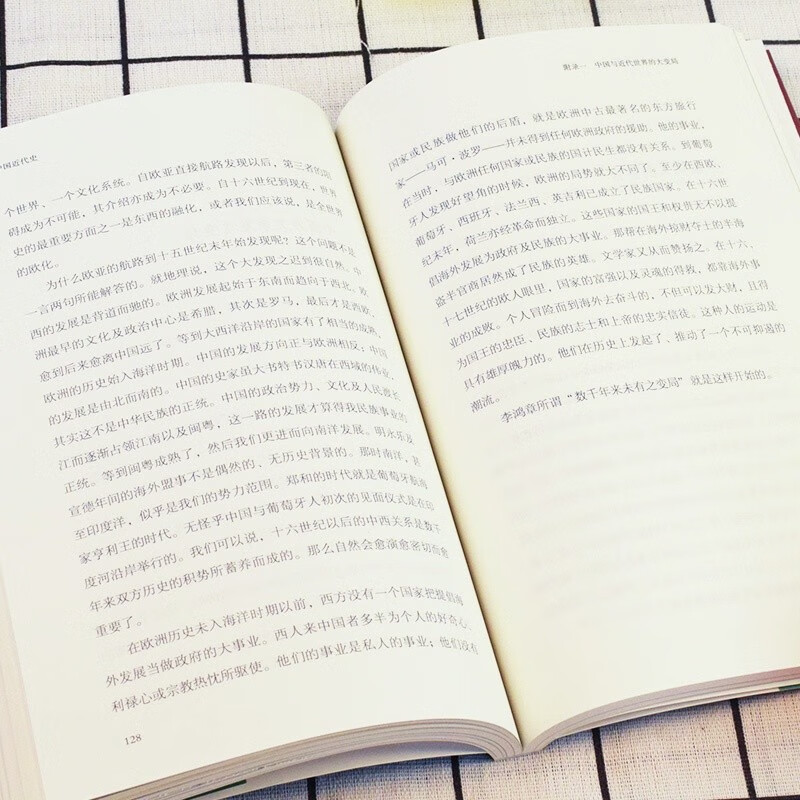 中国近代史
个世界，一个文化系统。自欧亚直接航路发现以后，第三者的阻
碍成为不可能，其介绍亦成为不必要。自十六世纪到现在，世界
史的最重要方面之一是东西的融化，或者我们应该说，是全世界
的欧化。
为什么欧亚的航路到十五世纪末年始发现呢？这个问题不是
一言两句所能解答的。就地理说，这个大发现之迟到很自然。中
西的发展是背道而驰的。欧洲发展起始于东南而趋向于西北。欧
洲最早的文化及政治中心是希腊，其次是罗马，最后才是西欧，
愈到后来愈离中国远了。等到大西洋沿岸的国家有了相当的成熟，
欧洲的历史始入海洋时期。中国的发展方向正与欧洲相反；中国
的发展是由北而南的。中国的史家虽大书特书汉唐在西域的伟业，
其实这不是中华民族的正统。中国的政治势力、文化及人民渡长
江而逐渐占领江南以及闽粤，这一路的发展才算得我民族事业的
正统。等到闽粤成熟了，然后我们更进而向南洋发展。明永乐及
宣德年间的海外盟事不是偶然的、无历史背景的。那时南洋，甚
至印度洋，似乎是我们的势力范围。郑和的时代就是葡萄牙航海
家亨利王的时代。无怪乎中国与葡萄牙人初次的见面仪式是在印
度河沿岸举行的。我们可以说，十六世纪以后的中西关系是数千
年来双方历史的积势所蓄养而成的。那么自然会愈演愈密切而愈
重要了。
在欧洲历史未入海洋时期以前，西方没有一个国家把提倡海
外发展当做政府的大事业。西人来中国者多半为个人的好奇心、
利禄心或宗教热忱所驱使。他们的事业是私人的事业；他们没有
128
附录一 中国与近代世界的大变局
国家或民族做他们的后盾，就是欧洲中古最著名的东方旅行
家——马可·波罗——并未得到任何欧洲政府的援助。他的事业，
在当时，与欧洲任何国家或民族的国计民生都没有关系。到葡萄
牙人发现好望角的时候，欧洲的局势就大不同了。至少在西欧，
葡萄牙、西班牙、法兰西、英吉利已成立了民族国家。在十六世
纪末年，荷兰亦经革命而独立。这些国家的国王和权贵无不以提
倡海外发展为政府及民族的大事业。那稍在海外掠财夺土的半海
盗半官商居然成了民族的英雄。文学家又从而赞扬之。在十六、
十七世纪的欧人眼里，国家的富强以及灵魂的得救，都靠海外事
业的成败。个人冒险而到海外去奋斗的，不但可以发大财，且得
为国王的忠臣、民族的志士和上帝的忠实信徒。这种人的运动是
具有雄厚魄力的。他们在历史上发起了、推动了一个不可抑遏的
潮流。
李鸿章所谓“数千年来未有之变局”就是这样开始的。